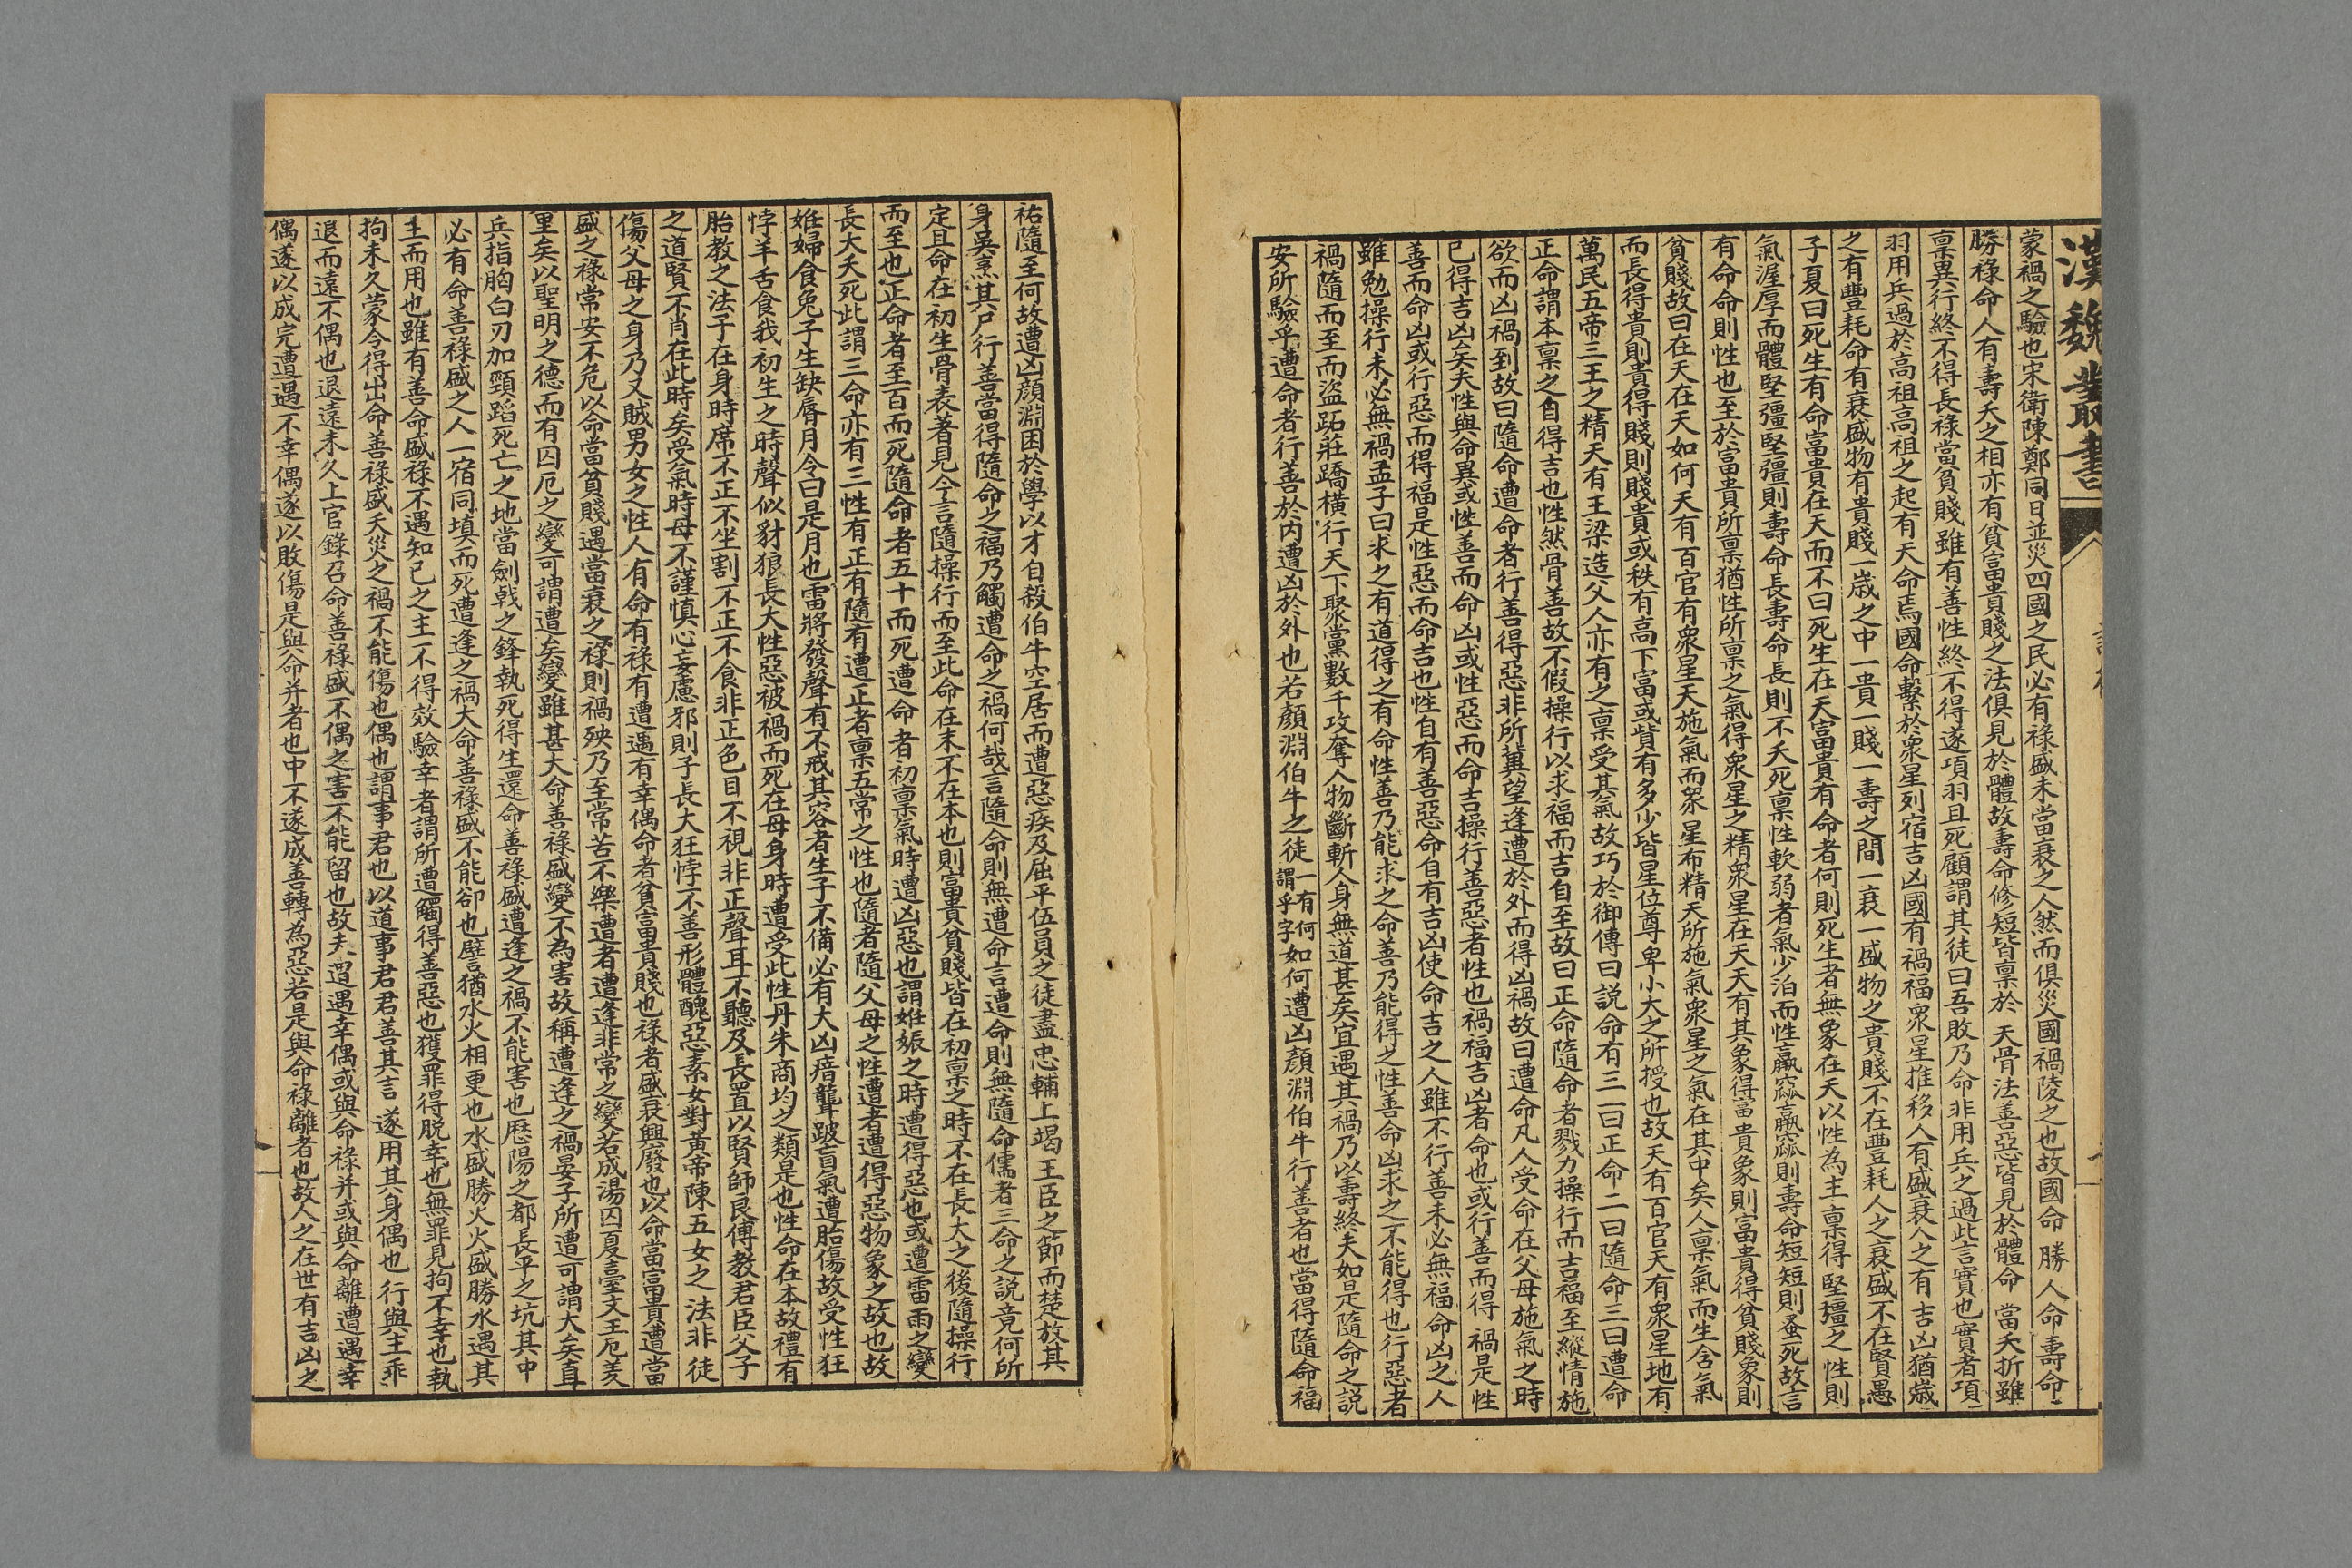 漢魏叢書
蒙禍之驗也宋衛陳鄭同日並災四國之民必有祿盛未當衰之人然而俱災國禍陵之也故國命勝人命壽命
勝祿命人有壽夭之相亦有貧富貴賤之法俱見於體故壽命修短皆禀於天骨法善惡皆見於體命當夭折雖
禀異行終不得長祿當貧賤雖有善性終不得遂項羽且死顧謂其徒曰吾敗乃命非用兵之過此言實也實者項
羽用兵過於高祖高祖之起有天命焉國命繫於眾星列宿吉凶國有禍福眾星推移人有盛衰人之有吉凶猶歲
之有豐耗命有衰盛物有貴賤一歲之中一貴一賤一壽之間一衰一盛物之貴賤不在豐耗人之衰盛不在賢愚
子夏曰死生有命富貴在天而不曰死生在天富貴有命者何則死生者無象在天以性為主禀得堅彊之性則
氣渥厚而體堅彊堅彊則壽命長壽命長則不夭死禀性軟弱者氣少泊而性羸窳羸窳則壽命短短則蚤死故言
有命命則性也至於富貴所禀猶性所禀之氣得眾星之精眾星在天天有其象得富貴象則富貴得貧賤象則
貧賤故曰在天在天如何天有百官有眾星天施氣而眾星布精天所施氣眾星之氣在其中矣人禀氣而生含氣
而長得貴則貴得賤則賤貴或秩有高下富或貲有多少皆星位尊卑小大之所授也故天有百官天有眾星地有
萬民五帝三王之精天有王梁造父人亦有之禀受其氣故巧於御傳曰說命有三一曰正命二曰隨命三曰遭命
正命謂本禀之自得吉也性然骨善故不假操行以求福而吉自至故曰正命隨命者戮力操行而吉福至縱情施
欲而凶禍到故曰隨命遭命者行善得惡非所冀望逢遭於外而得凶禍故曰遭命凡人受命在父母施氣之時
已得吉凶矣夫性與命異或性善而命凶或性惡而命吉操行善惡者性也禍福吉凶者命也或行善而得禍是性
善而命凶或行惡而得福是性惡而命吉也性自有善惡命自有吉凶使命吉之人雖不行善未必無福命凶之人
雖勉操行未必無禍孟子曰求之有道得之有命性善乃能求之命善乃能得之性善命凶求之不能得也行惡者
禍隨而至而盜跖莊蹻橫行天下聚黨數千攻奪人物斷斬人身無道甚矣宜遇其禍乃以壽終夫如是隨命之說
安所驗乎遭命者行善於內遭凶於外也若顏淵伯牛之徒一有何謂乎字如何遭凶顏淵伯牛行善者也當得隨命福
祐隨至何故遭凶顏淵困於學以才自殺伯牛空居而遭惡疾及屈平伍員之徒盡忠輔上竭王臣之節而楚放其
身吳烹其尸行善當得隨命之福乃觸遭命之禍何哉言隨命則無遭命言遭命則無隨命儒者三命之說竟何所
定且命在初生骨表著見今言隨操行而至此命在末不在本也則富貴貧賤皆在初禀之時不在長大之後隨操行
而至也正命者至百而死隨命者五十而死遭命者初禀氣時遭凶惡也謂姙娠之時遭得惡也或遭雷雨之變
長大夭死此謂三命亦有三性有正有隨有遭正者禀五常之性也隨者隨父母之性遭者遭得惡物象之故也故
姙婦食兔子生缺脣月令曰是月也雷將發聲有不戒其容者生子不備必有大凶瘖聾跛盲氣遭胎傷故受性狂
悖羊舌食我初生之時聲似豺狼長大性惡被禍而死在母身時遭受此性丹朱商均之類是也性命在本故禮有
胎教之法子在身時席不正不坐割不正不食非正色目不視非正聲耳不聽及長置以賢師良傅教君臣父子
之道賢不肖在此時矣受氣時母不謹慎心妄慮邪則子長大狂悖不善形體醜惡素女對黃帝陳五女之法非徒
傷父母之身乃又賊男女之性人有命有祿有遭遇有幸偶命者貧富貴賤也祿者盛衰興廢也以命當富貴遭當
盛之祿常安不危以命當貧賤遇當衰之祿則禍殃乃至常苦不樂遭者遭逢非常之變若成湯囚夏臺文王厄羑
里矣以聖明之德而有囚厄之變可謂遭矣變雖甚大命善祿盛變不為害故稱遭逢之禍晏子所遭可謂大矣直
兵指胸白刃加頸蹈死亡之地當劍戟之鋒執死得生還命善祿盛遭逢之禍不能害也歷陽之都長平之坑其中
必有命善祿盛之人一宿同填而死遭逢之禍大命善祿盛不能卻也譬猶水火相更也水盛勝火火盛勝水遇其
主而用也雖有善命盛祿不遇知己之主不得效驗幸者謂所遭觸得善惡也獲罪得脫幸也無罪見拘不幸也執
拘未久蒙令得出命善祿盛夭災之禍不能傷也偶也謂事君也以道事君君善其言遂用其身偶也行與主乖
退而遠不偶也退遠未久上官錄召命善祿盛不偶之害不能留也故夫遭遇幸偶或與命祿并或與命離遭遇幸
偶遂以成完遭遇不幸偶遂以敗傷是與命并者也中不遂成善轉為惡若是與命祿離者也故人之在世有吉凶之